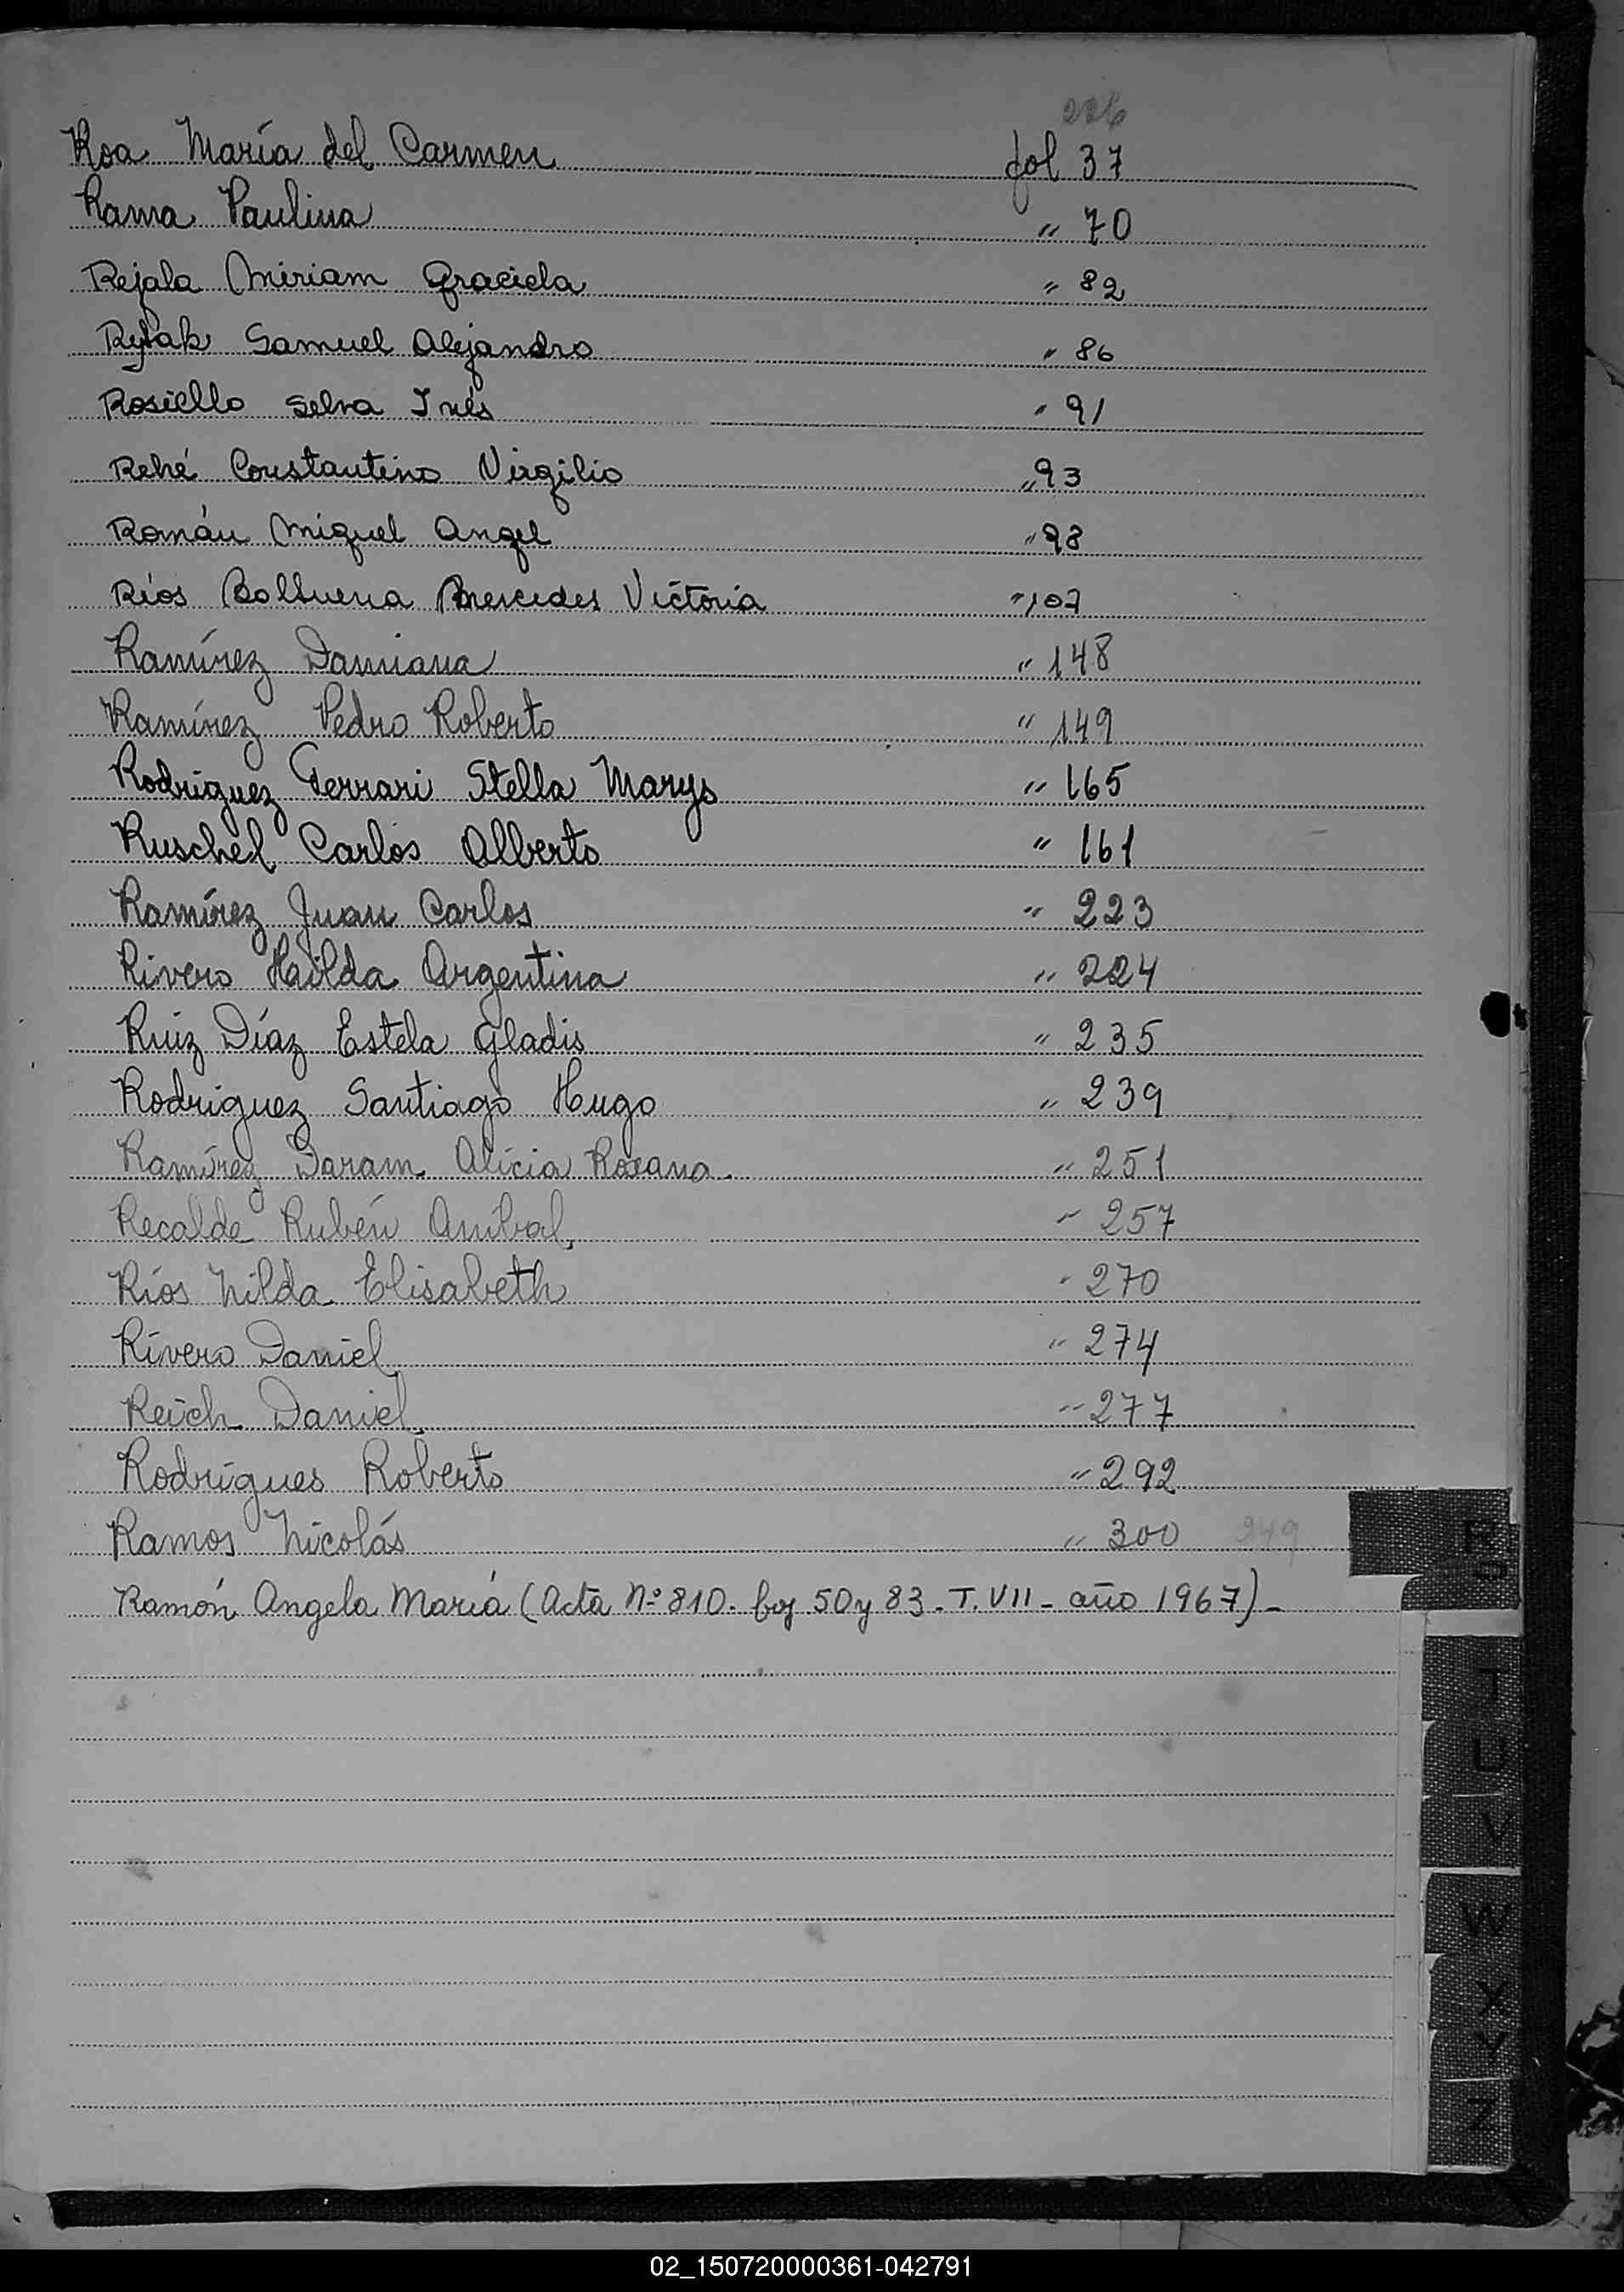 226
Roa María del Carmen fol 37
Rama Paulina " 70
Rejala Miriam Graciela " 82
Rybak Samuel Alejandro " 86
Rosiello Selva Inés " 91
Rehé Constantino Virgilio " 93
Román Miguel Angel " 98
Ríos Balbuena Mercedes Victoria " 107
Ramírez Damiana " 148
Ramírez Pedro Roberto " 149
Rodriguez Ferrari Stella Marys " 165
Ruschel Carlos Alberto " 161
Ramírez Juan Carlos " 223
Rivero Hilda Argentina " 224
Ruiz Díaz Estela Gladis " 235
Rodriguez Santiago Hugo " 239
Ramírez Daram Alicia Roxana " 251
Recalde Rubén Aníbal " 257
Ríos Nilda Elisabeth " 270
Rivero Daniel " 274
Reich Daniel " 277
Rodrigues Roberto " 292
Ramos Nicolás " 300 249
Ramón Angela María (Acta Nº 810. foj 50 y 83 - T. VII - año 1967) -
R
T
U
V
W
X
Y
Z
02_150720000361-042791